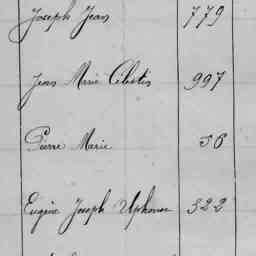 Joseph Jean 779
Jean Marie Célestin 997
Pierre Marie 56
Eugène Joseph Alphonse 322